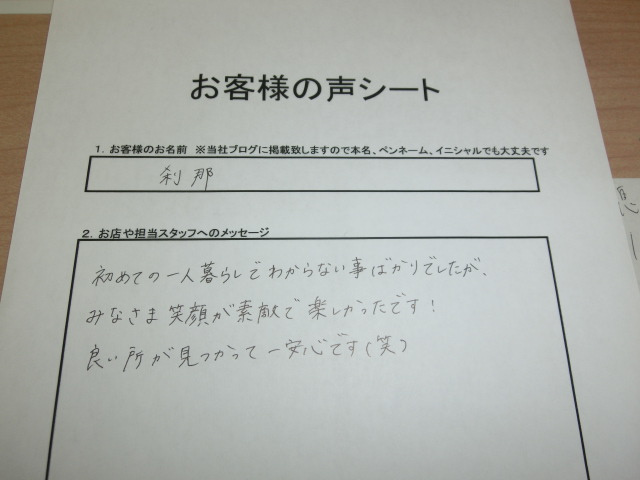 お客様の声シート
1．お客様のお名前　※当社ブログに掲載致しますので本名、ペンネーム、イニシャルでも大丈夫です
刹那
2．お店や担当スタッフへのメッセージ
初めての一人暮らしでわからない事ばかりでしたが、
みなさま笑顔が素敵で楽しかったです！
良い所が見つかって一安心です(笑)